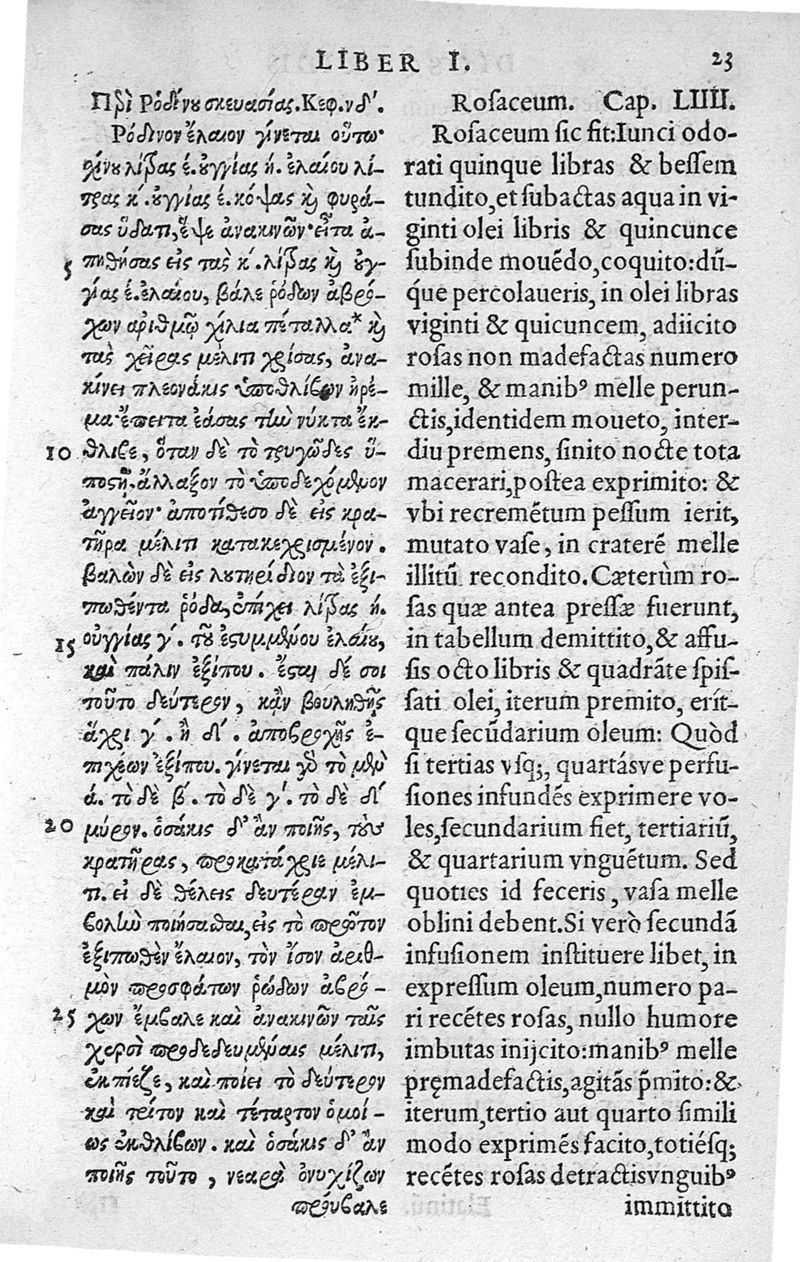 LIBER I. 23
Περὶ Ροδίνου σκευασίας. Κεφ. νδʹ.
Ρόδινον ἔλαιον γίνεται οὕτω·
σχίνου λίτρας ε. οὐγγίας η. ἐλαίου λί-
τρας κʹ. οὐγγίας ε. κόψας ϗ φυρά-
σας ὕδατι, ἕψε ἀνακινῶν· εἶτα ἀ-
5 πηθήσας εἰς τὰς κʹ. λίτρας ϗ οὐγ-
γίας ε. ἐλαίου, βάλε ῥόδων ἀβρό-
χων ἀριθμῷ χίλια πέταλλα* ϗ
τὰς χεῖρας μέλιτι χρίσας, ἀνα-
κίνει πλεονάκις ὑποθλίβων ἠρέ-
μα· ἔπειτα ἐάσας τὴν νύκτα ἔκ-
10 θλιβε, ὅταν δὲ τὸ τρυγῶδες ὑ-
ποστῇ, ἄλλαξον τὸ ὑποδεχόμενον
ἀγγεῖον· ἀποτίθεσο δὲ εἰς κρα-
τῆρα μέλιτι κατακεχρισμένον.
βαλὼν δὲ εἰς λουτηρίδιον τὰ ἐξι-
πωθέντα ῥόδα, ἐπίχει λίτρας η.
15 οὐγγίας γʹ. τοῦ ἐστυμμένου ἐλαίου,
καὶ πάλιν ἐξίπου. ἔσται δέ σοι
τοῦτο δεύτερον, κᾂν βουληθῇς
ἄχρι γʹ. ἢ δʹ. ἀποβροχῆς ἐ-
πιχέων ἐξίπου. γίνεται γὰρ τὸ μὲν
ά. τὸ δὲ βʹ. τὸ δὲ γʹ. τὸ δὲ δʹ
20 μύρον. ὁσάκις δ' ἂν ποιῇς, τοὺς
κρατῆρας, προκατάχριε μέλι-
τι. εἰ δὲ θέλεις δευτέραν ἐμ-
βολὴν ποιήσασθαι, εἰς τὸ πρῶτον
ἐξιπωθὲν ἔλαιον, τὸν ἴσον ἀριθ-
μὸν προσφάτων ῥόδων ἀβρό-
25 χων ἔμβαλε καὶ ἀνακινῶν ταῖς
χερσὶ προδεδευμέναις μέλιτι,
ἐκπίεζε, καὶ ποίει τὸ δεύτερον
καὶ τρίτον καὶ τέταρτον ὁμοί-
ως ἐκθλίβων. καὶ ὁσάκις δ' ἂν
ποιῇς τοῦτο, νεαρὰ ὀνυχίζων
πρόσβαλε
Roſaceum. Cap. LIIII.
Roſaceum ſic fit: Iunci odo-
rati quinque libras & beſſem
tundito, et ſubactas aqua in vi-
ginti olei libris & quincunce
ſubinde mouẽdo, coquito: dũ-
q́ue percolaueris, in olei libras
viginti & quicuncem, adiicito
roſas non madefactas numero
mille, & manibꝰ melle perun-
ctis, identidem moueto, inter-
diu premens, ſinito nocte tota
macerari, poſtea exprimito: &
vbi recremẽtum peſſum ierit,
mutato vaſe, in craterẽ melle
illitũ recondito. Cæterùm ro-
ſas quæ antea preſſæ fuerunt,
in tabellum demittito, & affu-
ſis octo libris & quadrãte ſpiſ-
ſati olei, iterum premito, erít-
que ſecũdarium oleum: Quòd
ſi tertias vſq;, quartásve perfu-
ſiones infundẽs exprimere vo-
les, ſecundarium fiet, tertiariũ,
& quartarium vnguẽtum. Sed
quoties id feceris, vaſa melle
oblini debent. Si verò ſecundã
infuſionem inſtituere libet, in
expreſſum oleum, numero pa-
ri recẽtes roſas, nullo humore
imbutas inijcito: manibꝰ melle
pręmadefactis, agitãs p̃mito: &
iterum, tertio aut quarto ſimili
modo exprimẽs facito, totiéſq;
recẽtes roſas detractis vnguibꝰ
immittito